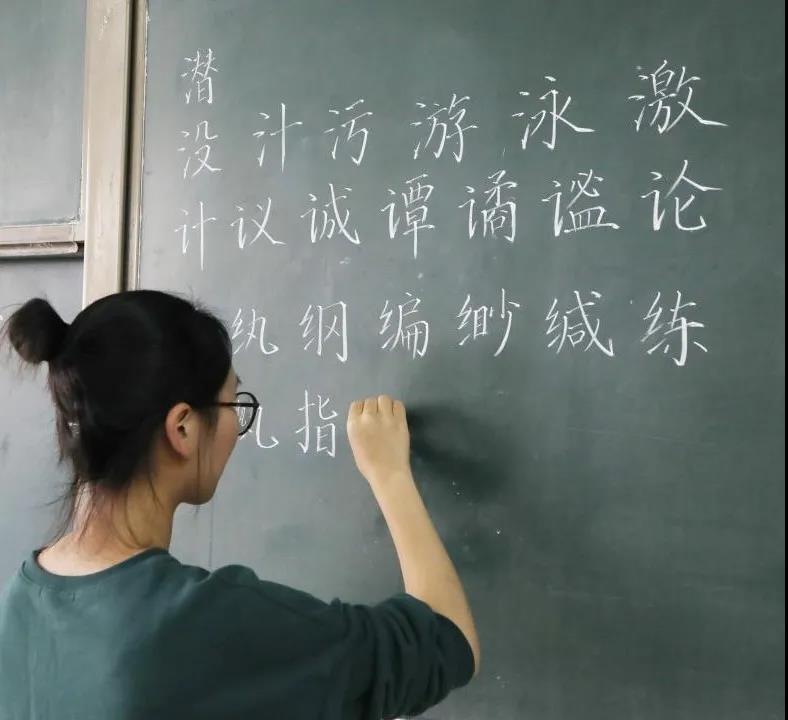 潜
没 汁 污 游 泳 激
计 议 诚 谭 谲 谧 论
纨 纲 编 缈 缄 练
指